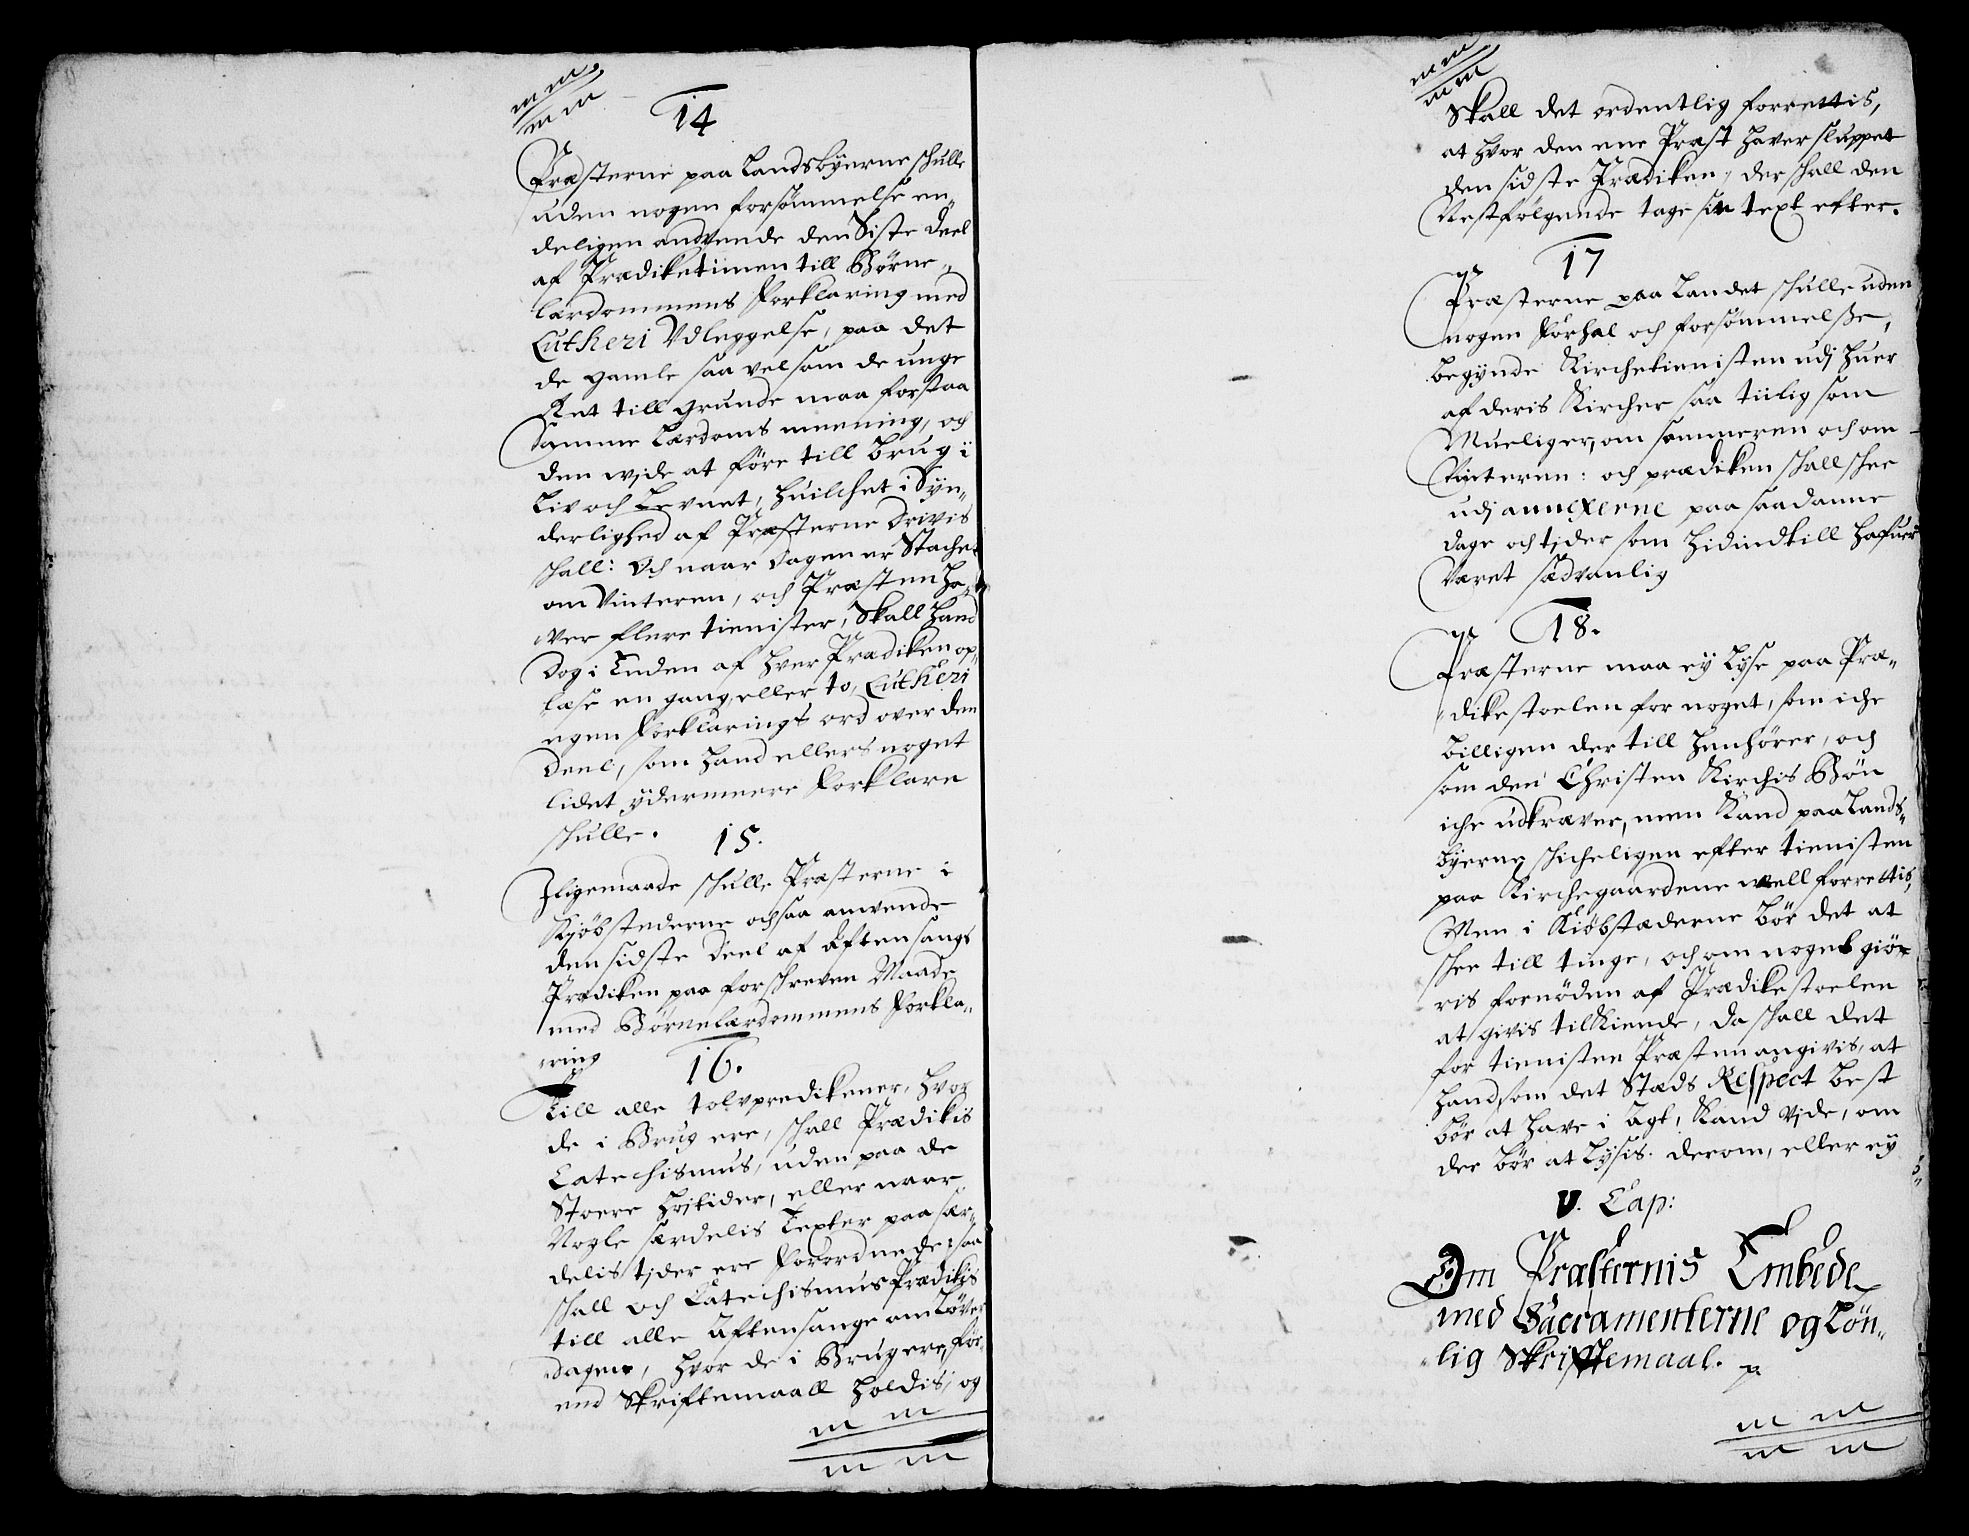 14
Præsterne paa Landsbÿerne schulle
uden nogen forsømmelse en„
deligen andvende den Siste Deel
af Prædiketimen till Børne„
lærdommens Forklaring med
Lutheri Udleggelse, paa det
de gamle saa vel som de unge
Ret till grunde maa forstaa
Samme Lærdoms meening, och
den wide at føre till brug i
Liv och Levnet, huilchet i Sÿn„
derlighed af Præsterne Drivis
schall: Och naar Dagen er Stachet
om Vinteren, och Præsten ha„
ver flere tienister, Skall hand
Dog i Enden af hver Prædiken op„
læse en gang, eller to, Lutheri
egen Forklarings ord over den
Deel, som hand ellers noget
lidet ÿdermeere Forklare
schulle.
15.
Jligemaade schulle Præsterne i
Kjøbstederne ochsaa anvende
den sidste Deel af Aftensangs
Prædiken paa forschreven Maade
med Børnelærdommens Forkla„
„ring
16.
Till alle tolvpredikener, hvor
de i Brug ere, schall Prædikis
Catechismus, uden paa de
Stoere Højtider, eller naar
Nogle særdelis Texter paa sær„
delis tjder ere Forordnede: saa
schall och Catechismus Prædikis
till alle Aftensange om Løver„
dagene, hvor de i Brug ere, før„
end Skriftemaall holdis, og
Skall det ordentlig forrettis,
at hvor den ene Præst haver sluppet
den sidste Prædiken, der schall den
Nestfølgende tage sin text efter.
17
Præsterne paa Landet schulle uden
nogen Forhal och forsømmelsse,
begÿnde Kirchetienisten udj huer
af deris Kircher saa tiilig som
Mueliger, om sommeren och om
Vinteren: och prædiken schall schee
udj annexerne paa saadanne
dage och tjder som hidindtill hafuer
Været sædvanlig
18.
Præsterne maa eÿ lÿse paa Præ„
„dikestoelen for noget, som iche
billigen der till henhører, och
som den Christen Kirchis Bøn
iche udkræver, men kand paa Lands„
bÿerne schicheligen efter tienisten
paa Kirchegaardene well forrettis,
Men i Kiøbstæderne bør det at
schee till tinge, och om noget giø„
ris fornøden af Prædikestoelen
at givis tilkiende, da schall det
for tienisten Præsten angivis, at
hand, som det Stæds Respect best
bør at have i agt, kand vjde, om
der bør at lÿsis. derom, eller eÿ
V. Cap:
Om Præsternis Embede
med Sacramenterne og Løn„
„lig Skriftemaal.